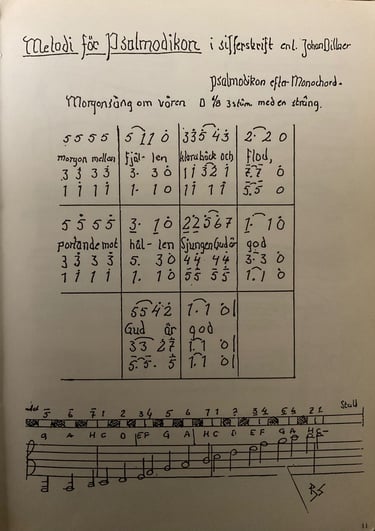 Melodi för Psalmodikon i sifferskrift enl. Johan Dillner
Psalmodikon efter Monochord.
Morgonsång om våren D 4/8 3 stäm. med en sträng.
5 5 5 5 5 1 1 0 3 3 5 4 3 2 . 2 0
morgon mellan fjäl- len klara bäck och flod,
3 3 3 3 3 . 3 0 1 1 3 2 1 7 . 7 0
1 1 1 1 1 . 1 0 1 1 1 1 1 5 . 5 0
5 5 5 5 3 . 1 0 2 2 5 6 7 1 . 1 0
portande mot häl- len Sjungen Gud är god
3 3 3 3 5 . 3 0 4 4 4 4 3 . 3 0
1 1 1 1 1 . 1 0 5 5 5 5 1 . 1 0
5 5 4 2 1 . 1 0
Gud är god
3 3 2 7 1 . 1 0
5 . 5 . 5 1 . 1 0
5 6 7 1 2 3 4 5 6 7 1 2 3 4 5 6 7 1 Stall
G A H C D E F G A H C D E F G A H C
RS
11